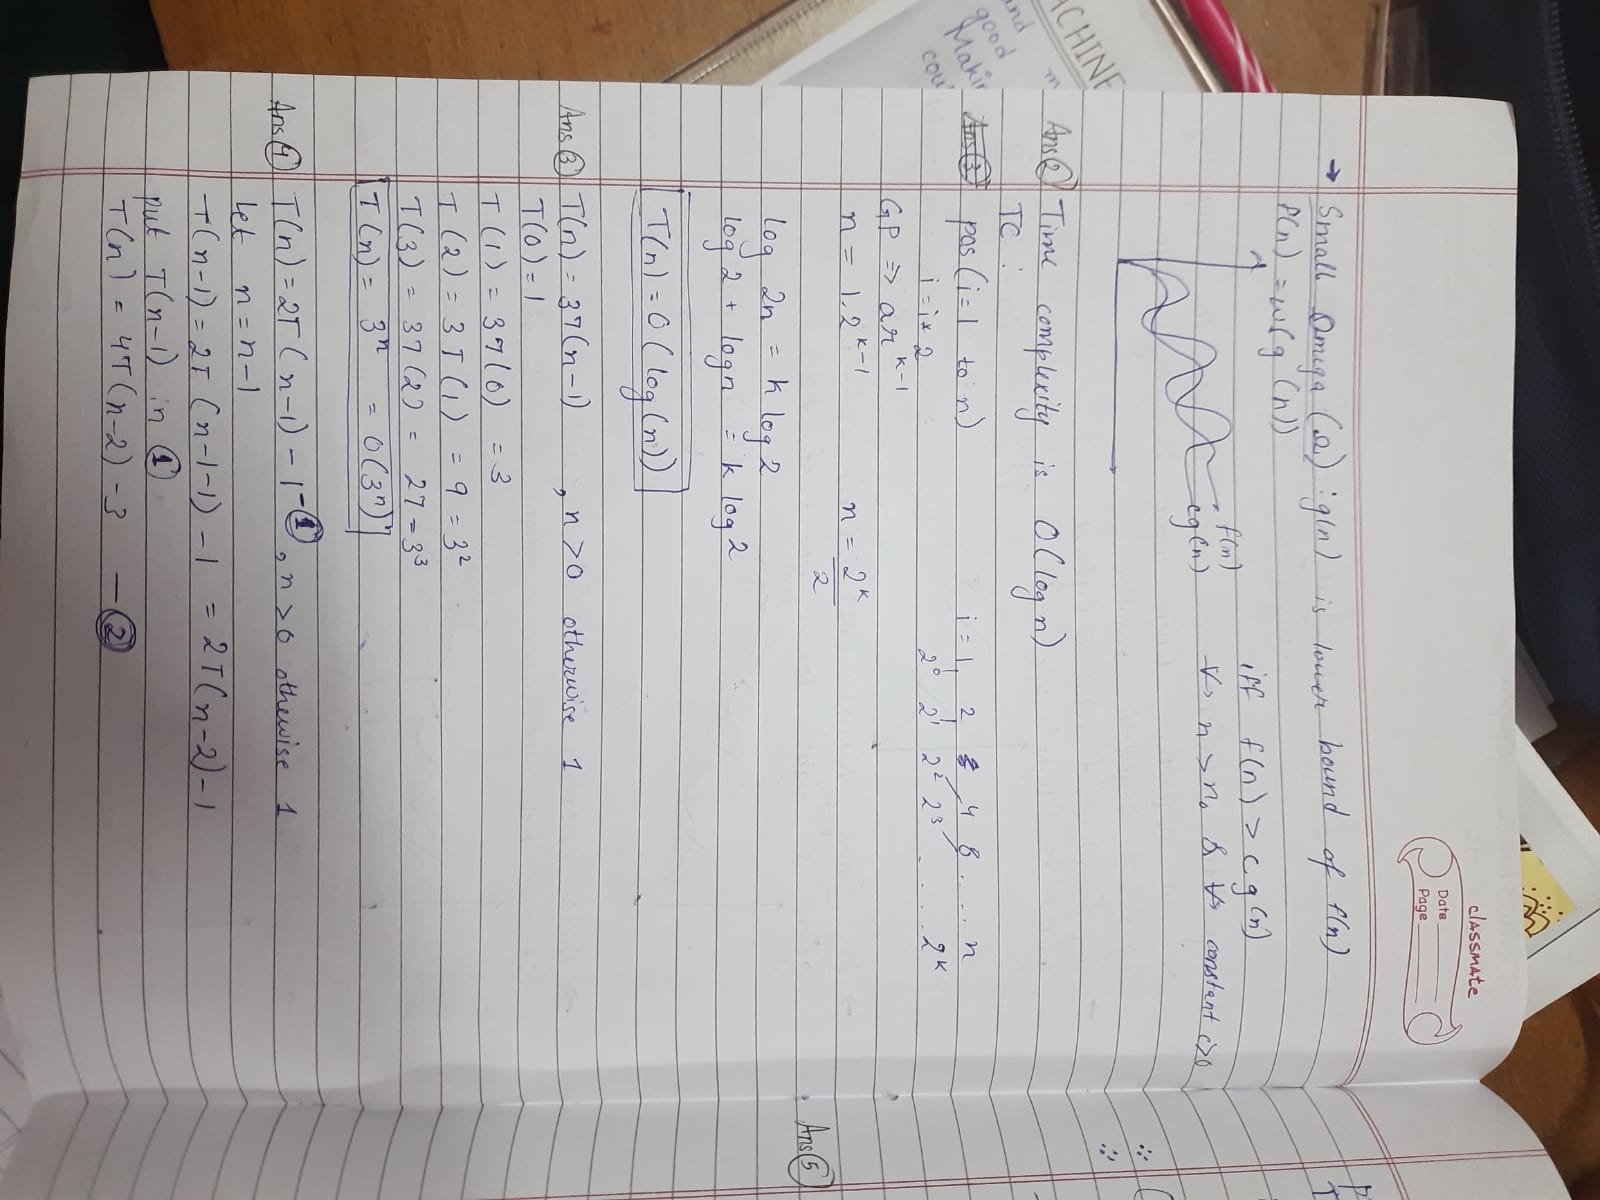 classmate
Date
Page
→ Small Omega (ω) : g(n) is lower bound of f(n)
f(n) = ω(g(n))
iff f(n) > cg(n)
f(n)
cg(n)
∀ n > n₀ & ∀ constant c>0
Ans② Time complexity is O(log n)
TC:
Ans③ for (i=1 to n) i = 1, 2 4 8 ... n
i = i*2 2⁰ 2¹ 2² 2³ ... 2ᵏ
GP => arᵏ⁻¹
n = 1.2ᵏ⁻¹ n = 2ᵏ/2
log 2n = k log 2
log 2 + log n = k log 2
T(n) = O(log(n))
Ans③ T(n) = 3T(n-1) , n>0 otherwise 1
T(0) = 1
T(1) = 3T(0) = 3
T(2) = 3T(1) = 9 = 3²
T(3) = 3T(2) = 27 = 3³
T(n) = 3ⁿ = O(3ⁿ)
Ans④ T(n) = 2T(n-1) - 1 - ①, n>0 otherwise 1
let n = n-1
T(n-1) = 2T(n-1-1) - 1 = 2T(n-2) - 1
put T(n-1) in ①
T(n) = 4T(n-2) - 3 — ②
Ans⑤
∴
∴
CHINE
and
good
Makin
cou